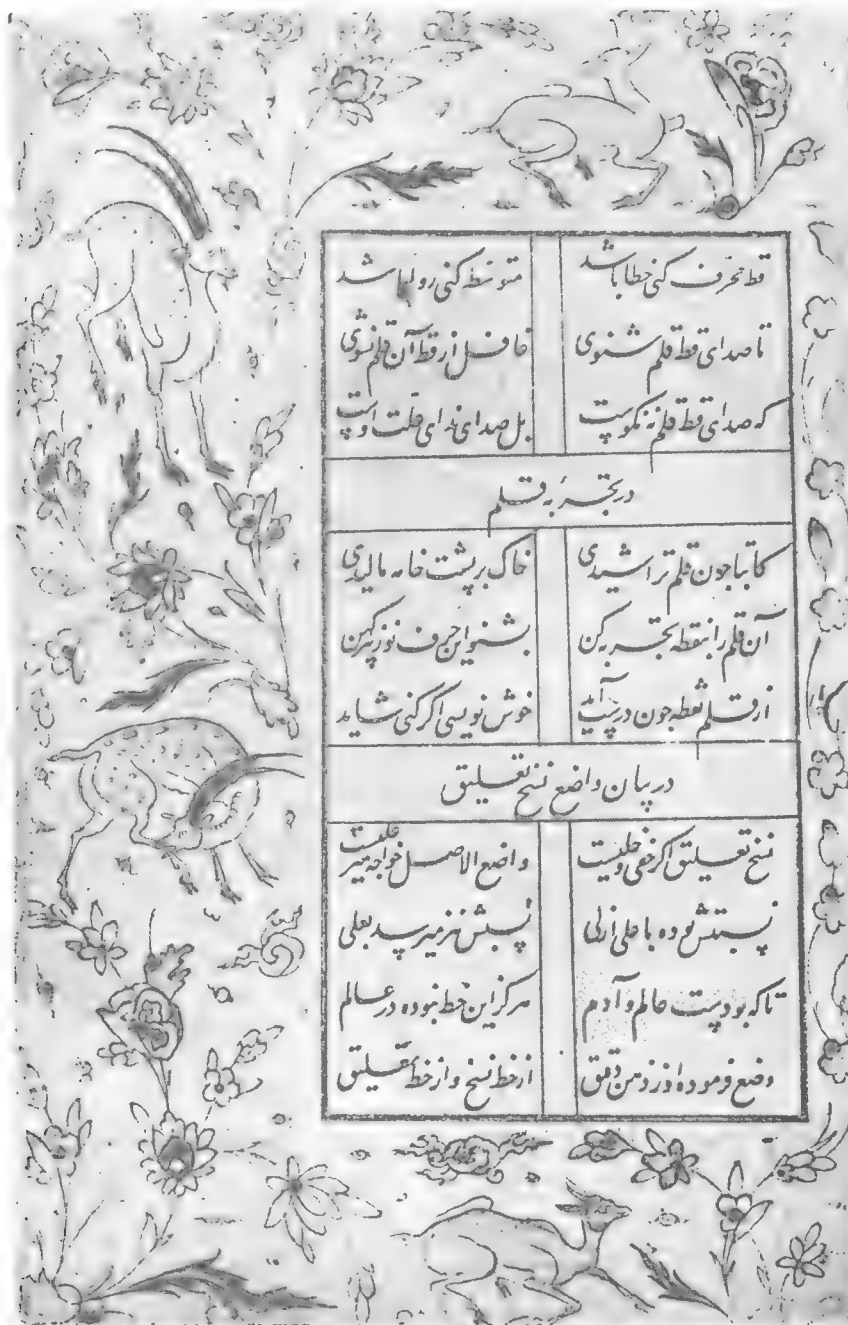 قط محرف کنی خطا باشد متوسط کنی روا باشد
تا صدای قط قلم شنوی غافل از قط آن قلم نشوی
که صدای قط قلم نه نکوست بل صدای ندای اوست
در تجربهٔ قلم
کاتبا چون قلم تراشیدی خاک بر پشت خامه مالیدی
آن قلم را بنقطه تجربه کن بشنو این حرف نو ز پیر کهن
از قلم نقطه چون درست آید خوش نویسی اگر کنی شاید
در بیان واضع نسخ تعلیق
نسخ تعلیق اگر خفی و جلیست واضع الاصل خواجه میر علیست
نسبتش بوده با علی ازلی نسبش نیز میرسد بعلی
تا که بودست عالم و آدم هرگز این خط نبوده در عالم
وضع فرموده او ز ذهن دقیق از خط نسخ و از خط تعلیق